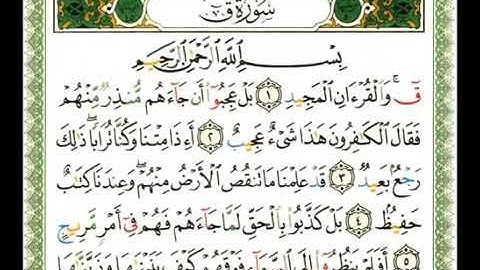 سُورَةُ ق
بِسْمِ ٱللَّهِ ٱلرَّحْمَٰنِ ٱلرَّحِيمِ
قٓ ۚ وَٱلْقُرْءَانِ ٱلْمَجِيدِ ١ بَلْ عَجِبُوٓا۟ أَن جَآءَهُم مُّنذِرٌ مِّنْهُمْ
فَقَالَ ٱلْكَٰفِرُونَ هَٰذَا شَىْءٌ عَجِيبٌ ٢ أَءِذَا مِتْنَا وَكُنَّا تُرَابًا ۖ ذَٰلِكَ
رَجْعٌۢ بَعِيدٌ ٣ قَدْ عَلِمْنَا مَا تَنقُصُ ٱلْأَرْضُ مِنْهُمْ ۖ وَعِندَنَا كِتَٰبٌ
حَفِيظٌۢ ٤ بَلْ كَذَّبُوا۟ بِٱلْحَقِّ لَمَّا جَآءَهُمْ فَهُمْ فِىٓ أَمْرٍ مَّرِيجٍ
٥ أَفَلَمْ يَنظُرُوٓا۟ إِلَى ٱلسَّمَآءِ فَوْقَهُمْ كَيْفَ بَنَيْنَٰهَا وَزَيَّنَّٰهَا